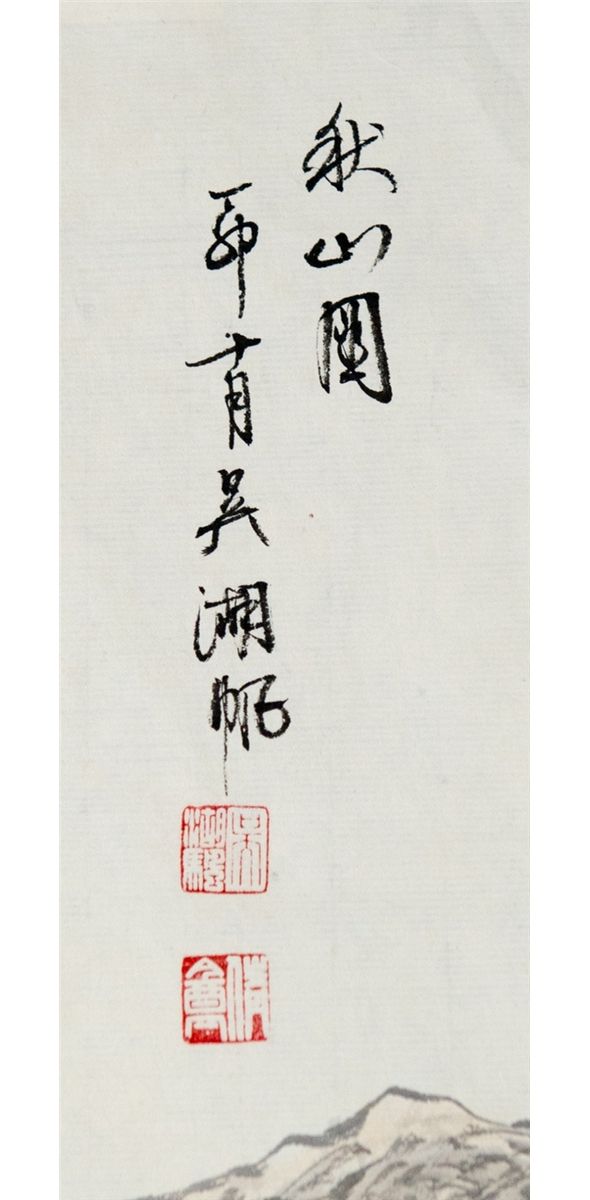 秋山圖
十月吳湖帆
吳湖颿
倩盦